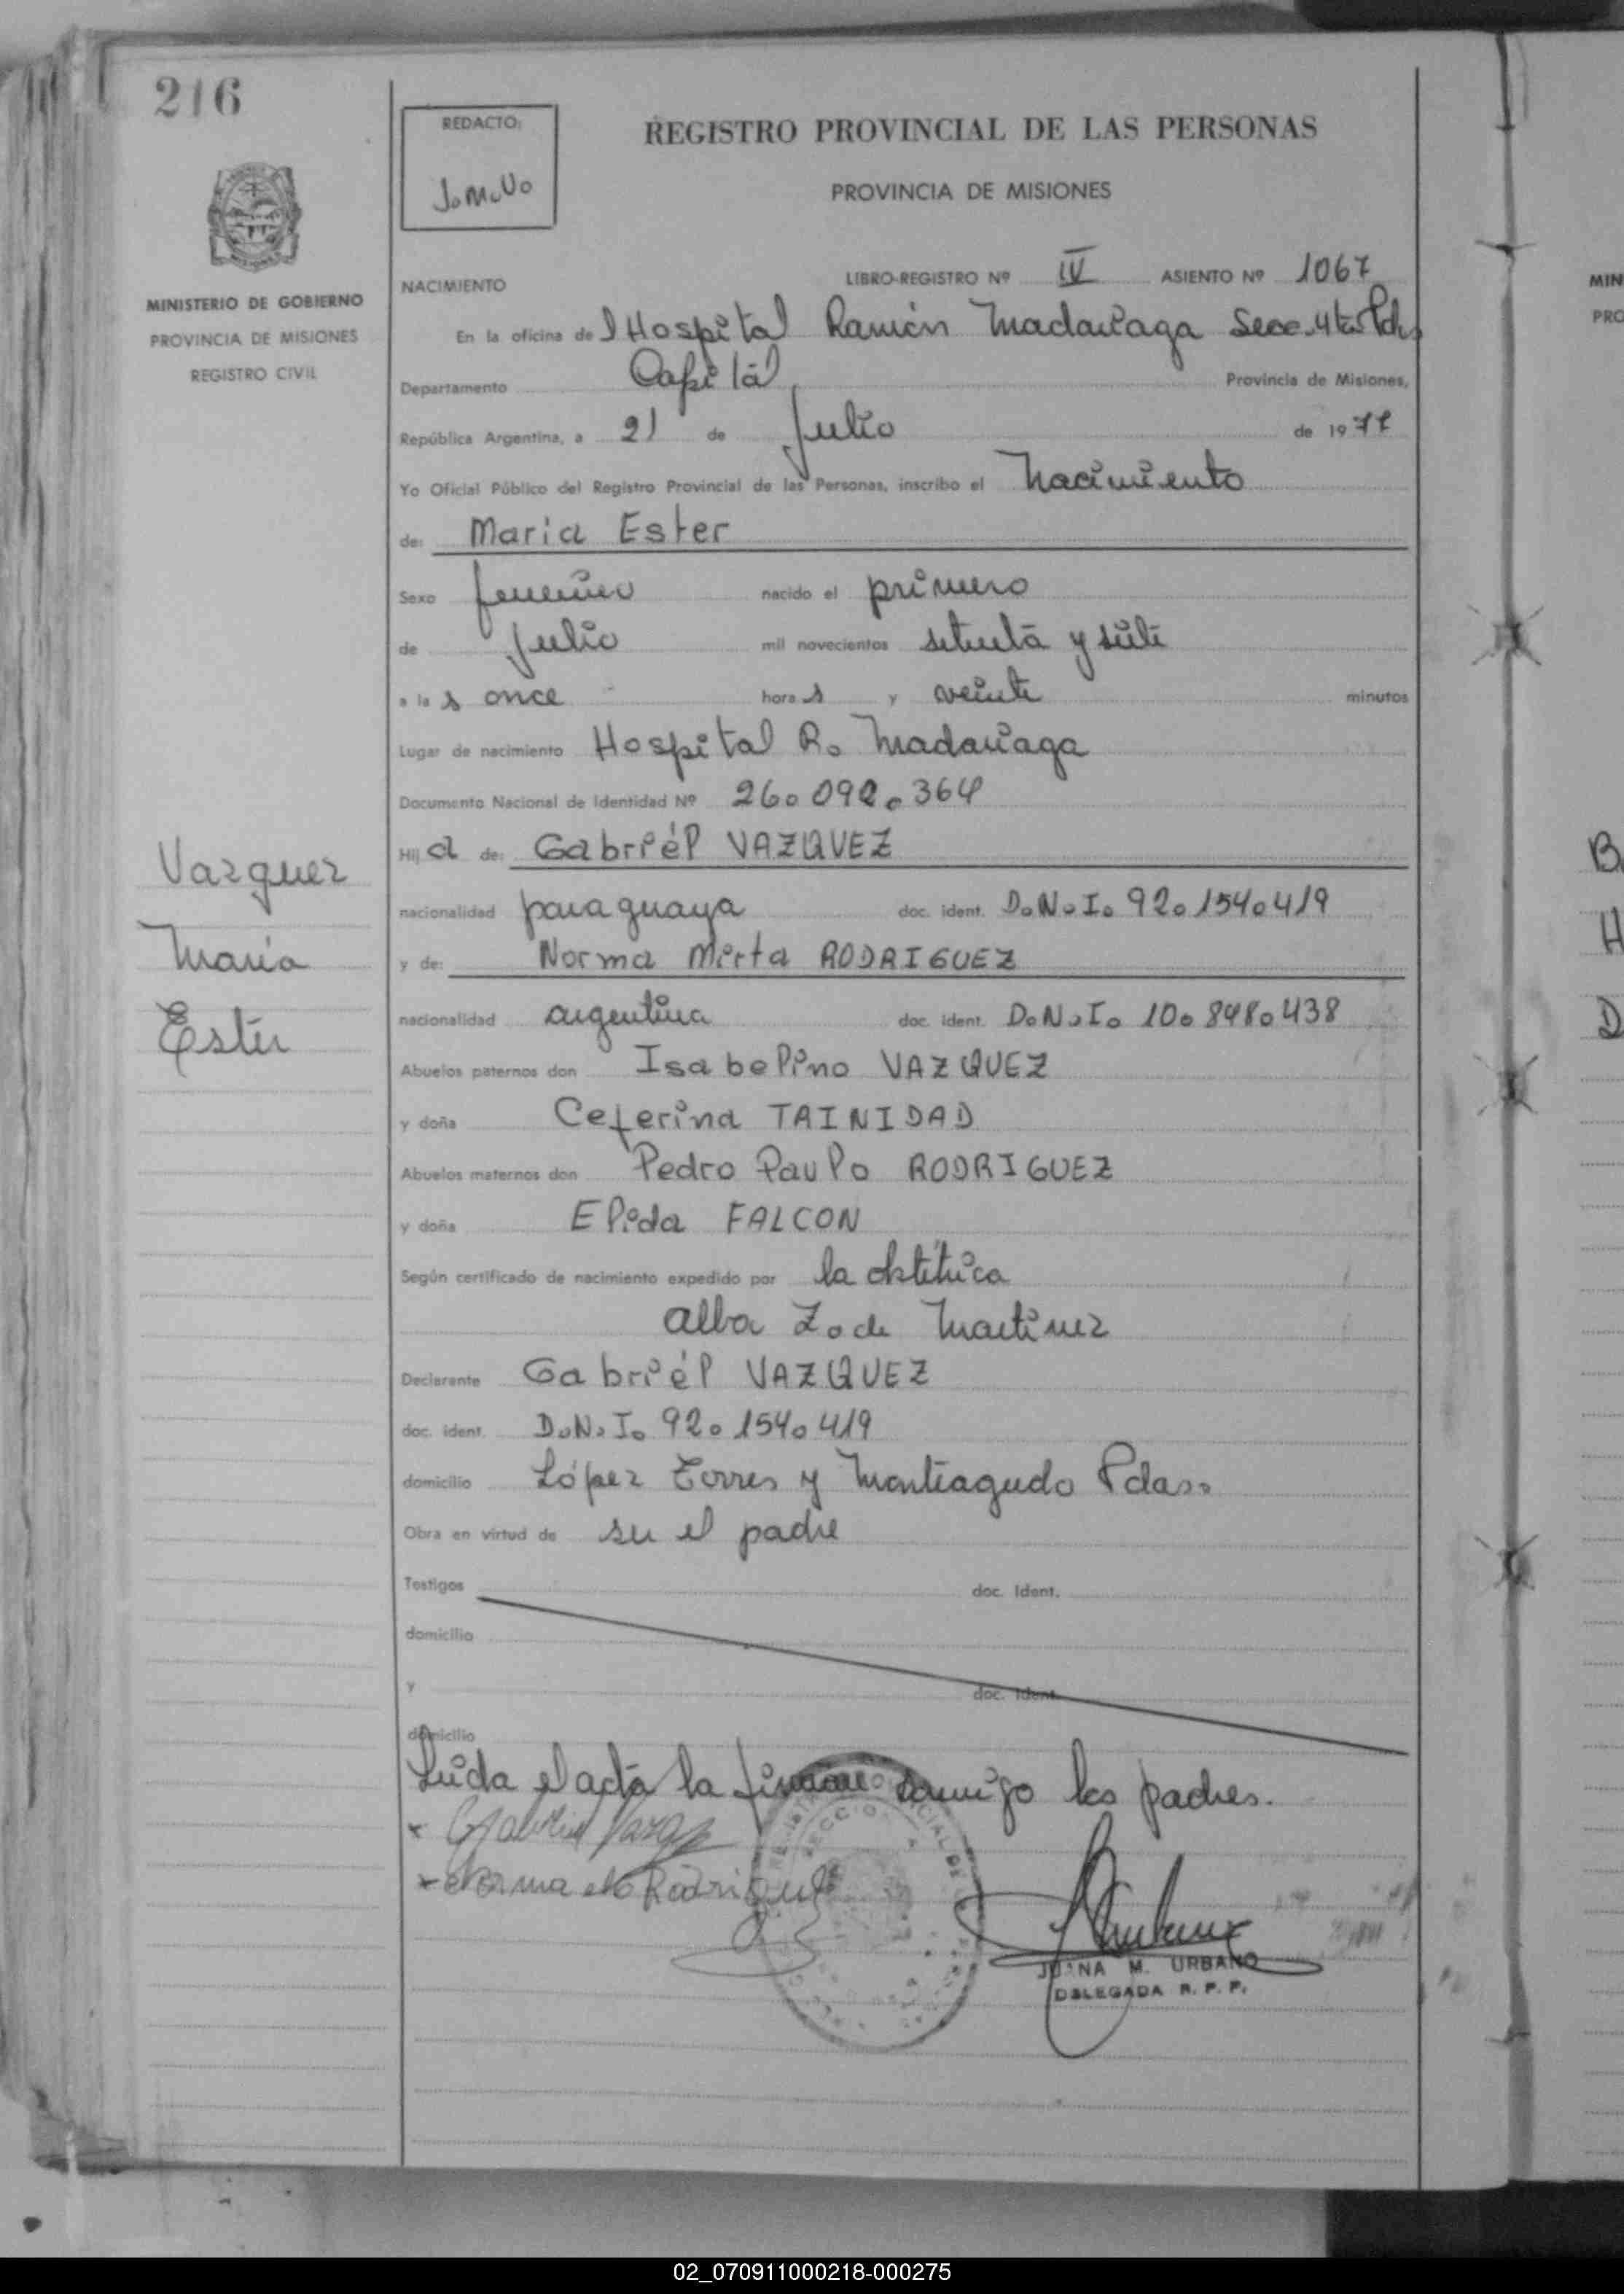 216
REDACTO:
J.M.U.
REGISTRO PROVINCIAL DE LAS PERSONAS
PROVINCIA DE MISIONES
MINISTERIO DE GOBIERNO
PROVINCIA DE MISIONES
REGISTRO CIVIL
NACIMIENTO LIBRO-REGISTRO Nº IV ASIENTO Nº 1067
En la oficina del Hospital Ramón Madariaga Secc. 4ta Pdas
Departamento Capital Provincia de Misiones,
República Argentina, a 21 de Julio de 1977
Yo Oficial Público del Registro Provincial de las Personas, inscribo el Nacimiento
de: Maria Ester
Sexo femenino nacido el primero
de Julio mil novecientos setenta y siete
a las once horas y veinte minutos
Lugar de nacimiento Hospital R. Madariaga
Documento Nacional de Identidad Nº 26.092.364
Hija de: Gabriél VAZQUEZ
nacionalidad paraguaya doc. ident. D.N.I. 92.154.419
y de: Norma Mirta RODRIGUEZ
nacionalidad argentina doc. ident. D.N.I. 10.848.438
Abuelos paternos don Isabelino VAZQUEZ
y doña Ceferina TAINIDAD
Abuelos maternos don Pedro Paulo RODRIGUEZ
y doña Elida FALCON
Según certificado de nacimiento expedido por la obstétrica
Alba Z. de Martinez
Declarante Gabriél VAZQUEZ
doc. ident. D.N.I. 92.154.419
domicilio López Torres y Monteagudo Pdas.
Obra en virtud de ser el padre
Testigos doc. Ident.
domicilio
y doc. Ident.
domicilio
Leida el acta la firman conmigo los padres.
x Gabriel Vazquez
x Norma M. Rodriguez
JUANA M. URBANO
DELEGADA R. P. P.
Vazquez
María
Ester
MIN
PRO
B
H
D
02_070911000218-000275